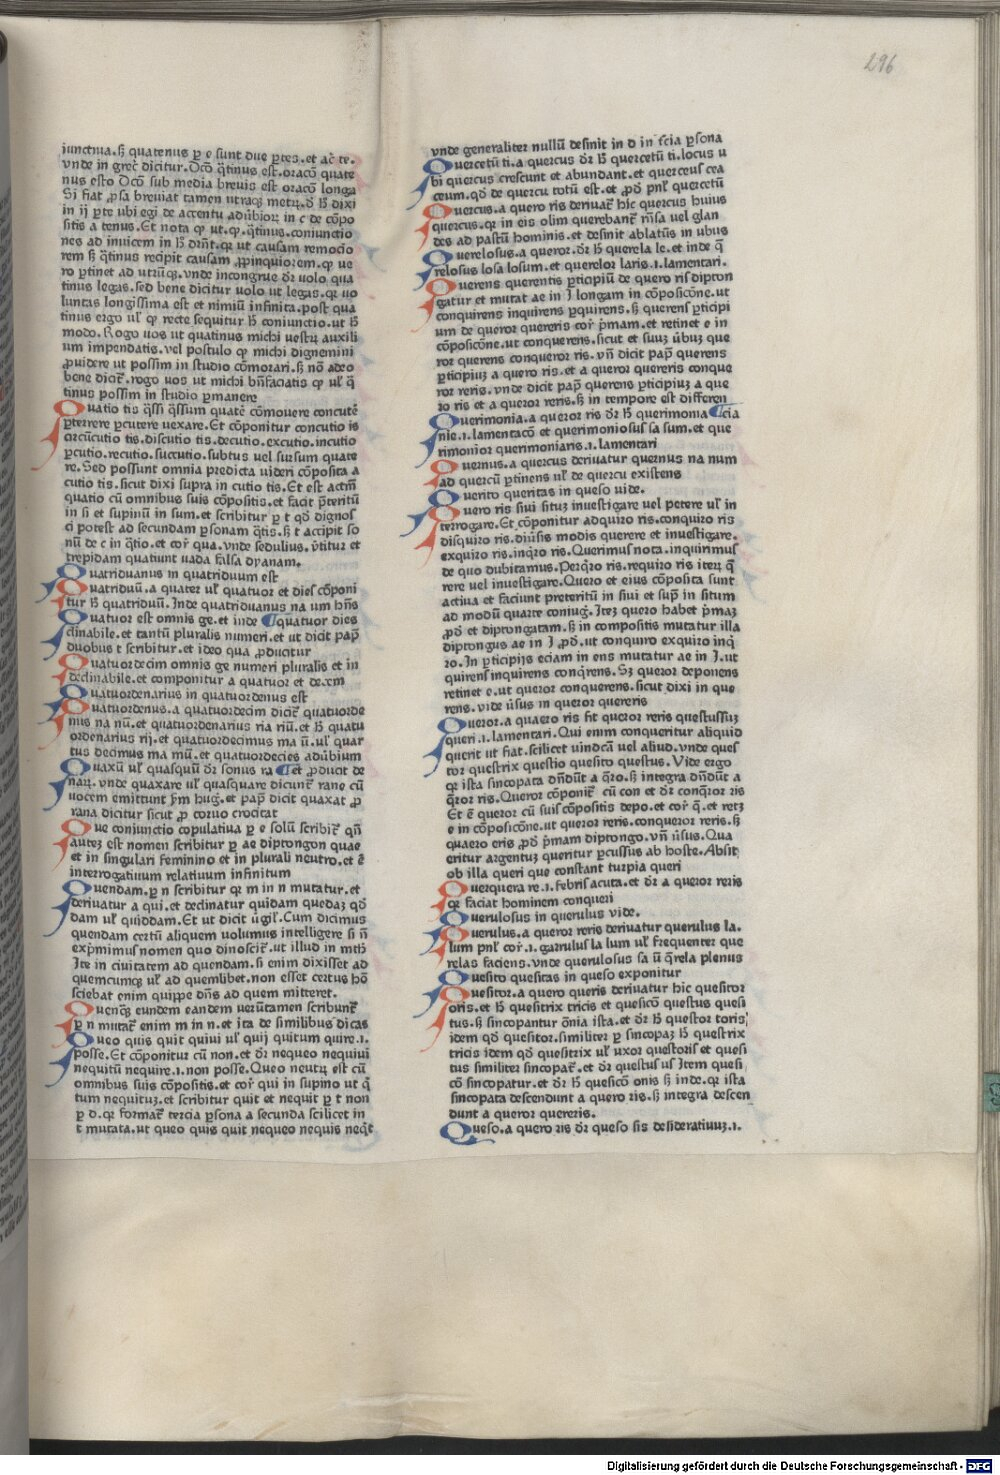 296
iunctiua.ꝫ quatenus ꝑ e sunt due ꝑtes.et ac̄ te.
vnde in grec̄ dicitur.Oc̄o q̄tinus est.orac̄oꝫ quate
nus esto Oc̄o sub media breuis est orac̄oꝫ longa
Si fiat ꝓsa breuiat tamen utraqꝫ metrꝫ.ð h̄ dixi
in ij ꝑte ubi egi de accentu adūbioꝝ in c de cōpo
sitis a tenus.Et nota ꝙ ut.ꝙ.q̄tinus.coniunctio
nes ad inuicem in h̄ drn̄t.qꝛ ut causam remocio
rem ꝫ q̄tinus recipit causam ꝓpinquiorem.ꝙ ue
ro ꝑtinet ad utrūqꝫ.vnde incongrue dr̄ uolo qua
tinus legas.sed bene dicitur uolo ut legas.qꝛ uo
luntas longissima est et nimiū infinita.post qua
tinus ergo ul̄ ꝙ recte sequitur h̄ coniunctio.ut h̄
modo.Rogo uos ut quatinus michi uestrꝫ auxili
um impendatis.vel postulo ꝙ michi dignemini
ꝓuidere ut possim in studio cōmorari.ꝫ nō adeo
bene dicit̄.rogo uos ut michi bn̄faciatis ꝙ ul̄ q̄
tinus possim in studio ꝑmanere
Quatio tis q̄ssi q̄ssum quate cōmouere concute
ꝑterrere ꝑcutere uexare.Et cōponitur concutio is
circūcutio tis.discutio tis.decutio.excutio.incutio
ꝑcutio.recutio.succutio.subtus vel sursum quate
re.Sed possunt omnia predicta uideri cōposita a
cutio tis.sicut dixi supra in cutio tis.Et est actm̄
quatio cū omnibus suis cōpositis.et facit p̄teritū
in si et supinū in sum.et scribitur ꝑ t qð dignos
ci potest ad secundam ꝑsonam q̄tis.ꝫ t accipit so
nū de c in q̄tio.et cor̄ qua.vnde sedulius.v̄titur et
trepidam quatiunt uada falsa dyanam.
Quatriduanus in quatriduum est
Quatriduū.a quater ul̄ quatuor et dies cōponi
tur h̄ quatriduū.Inde quatriduanus na um hn̄s
Quatuor est omnis ge.et inde ¶quatuor dies
clinabile.et tantū pluralis numeri.et ut dicit pap̄
duobus t scribitur.et ideo qua ꝓducitur
Quatuordecim omnis ge numeri pluralis et in
declinabile.et componitur a quatuor et decem
Quatuordenarius in quatuordenus est
Quatuordenus.a quatuordecim dicit̄ quatuorde
nus na nū.et quatuordenarius ria riū.et h̄ quatu
ordenarius rij.et quatuordecimus ma ū.ul̄ quar
tus decimus ma mū.et quatuordecies adūbium
Quaxū ul̄ quasquū dr̄ sonus ra ¶et ꝓducit de
narꝫ.vnde quaxare ul̄ quasquare dicunt̄ rane cū
uocem emittunt ẜm huḡ.et pap̄ dicit quaxat ꝓ
rana dicitur sicut ꝓ coruo crocitat
Que coniunctio copulatiua ꝑ e solū scribit̄ qn̄
auteꝫ est nomen scribitur ꝑ ae diptongon quae
et in singulari feminino et in plurali neutro.et ē
interrogatiuum relatiuum infinitum
Quendam.ꝑ n scribitur qꝛ m in n mutatur.et
deriuatur a qui.et declinatur quidam quedaꝫ qð
dam ul̄ quiddam.Et ut dicit ūgil̄.Cum dicimus
quendam certū aliquem uolumus intelligere si n̄
exp̄mimus nomen quo dinoscit̄.ut illud in mth̄
Ite in ciuitatem ad quendam.si enim dixisset ad
quemcumqꝫ ul̄ ad quemlibet.non esset certus hō
sciebat enim quippe dn̄s ad quem mitteret.
Quenqꝫ eundem eandem uerūtamen scribunt̄
ꝑ n mutat̄ enim m in n.et ita de similibus dicas
Queo quis quit quiui ul̄ quij quitum quire.ı.
posse.Et cōponitur cū non.et dr̄ nequeo nequiui
nequitū nequire.ı.non posse.Queo neutrꝫ est cū
omnibus suis cōpositis.et cor̄ qui in supino ut q̄
tum nequituꝫ.et scribitur quit et nequit ꝑ t non
ꝑ d.qꝛ format̄ tercia ꝑsona a secunda scilicet in
t mutata.ut queo quis quit nequeo nequis neq̄t
vnde generaliter nullū desinit in d in t̄cia ꝑsona
Quercetū ti.a quercus dr̄ h̄ quercetū ti.locus u
bi quercus crescunt et abundant.et querceus cea
ceum.qð de quercu totū est.et ꝓð pnl̄ quercetū
Quercus.a quero ris deriuat̄ hic quercus huius
quercus.qꝛ in eis olim querebant̄ mīsa uel glan
des ad pastū hominis.et desinit ablatīus in ubus
Querelosus.a queror.dr̄ h̄ querela le.et inde q̄
relosus losa losum.et querelor laris.ı.lamentari.
Querens querentis ꝑticipiū de quero ris dipton
gatur et mutat ae in J longam in cōposicōne.ut
conquirens inquirens ꝑquirens.ꝫ querens ꝑticipi
um de queror quereris cor̄ p̄mam.et retinet e in
cōposicōne.ut conquerens.sicut et suuꝫ ūbuꝫ que
ror querens conqueror ris.vn̄ dicit pap̄ querens
ꝑticipiuꝫ a quero ris.et a queror quereris conque
ror reris.vnde dicit pap̄ querens ꝑticipiuꝫ a que
ro ris et a queror reris.ꝫ in tempore est differen
Querimonia.a queror ris dr̄ h̄ querimonia ¶cia
nie.ı.lamentacō et querimoniosus sa sum.et que
rimonior querimoniaris.ı.lamentari
Quernus.a quercus deriuatur quernus na num
ad quercū ꝑtinens ul̄ de quercu existens
Querito queritas in queso uide.
Quero ris siui situꝫ inuestigare vel petere ul̄ in
terrogare.Et cōponitur adquiro ris.conquiro ris
disquiro ris.diūsis modis querere et inuestigare.
exquiro ris.inq̄ro ris.Querimus nota.inquirimus
de quo dubitamus.Perq̄ro ris.requiro ris iteꝝ q̄
rere vel inuestigare.Quero et eius cōposita sunt
actiua et faciunt preteritū in siui et sup̄ in situm
ad modū quarte coniuḡ.Iteꝫ quero habet p̄maꝫ
ꝓð et diptongatam.ꝫ in compositis mutatur illa
diptongus ae in J ꝓð.ut conquiro exquiro inq̄
ro.In ꝑticipijs eciam in ens mutatur ae in J.ut
quirens inquirens conq̄rens.Sꝫ queror deponens
retinet e.ut queror conquerens.sicut dixi in que
rens.vide ūsus in queror quereris
Queror.a quaero ris fit queror reris questussuꝫ
queri.ı.lamentari.Qui enim conqueritur aliquid
querit ut fiat.scilicet uindcā uel aliud.vnde ques
tor questrix questio quesito questus.Vide ergo
qꝛ ista sincopata dn̄dūt a q̄ro.ꝫ integra dn̄dūt a
q̄ror ris.Queror cōponit̄ cū con et dr̄ conq̄ror ris
Et ē queror cū suis cōpositis depo.et cor̄ q̄.et retꝫ
e in cōposicōne.ut queror reris.conqueror reris.ꝫ
quaero eris ꝓð p̄mam diptongo.vn̄ ūsus.Qua
eritur argentuꝫ queritur ꝑcussus ab hoste.Absit
ob illa queri que constant turpia queri
Querquera re.ı.febris acuta.et dr̄ a queror reris
qꝛ faciat hominem conqueri
Querulosus in querulus vide.
Querulus.a queror reris deriuatur querulus la.
lum pnl̄ cor̄.ı.garrulus la lum ul̄ frequenter que
relas faciens.vnde querulosus sa ū q̄rela plenus
Quesito quesitas in queso exponitur
Quesitor.a quero queris deriuatur hic quesitor
oris.et h̄ quesitrix tricis et quesicō questus quesi
tus.ꝫ sincopantur ōnia ista.et dr̄ h̄ questor toris
idem qð quesitor.similiter ꝑ sincopaꝫ h̄ questrix
tricis idem qð quesitrix ul̄ uxor questoris et quesi
tus similiter sincopat̄.et dr̄ questus us Item quesi
cō sincopatur.et dr̄ h̄ quesicō onis ꝫ inde.qꝛ ista
sincopata descendunt a quero ris.ꝫ integra descen
dunt a queror quereris.
Queso.a quero ris dr̄ queso sis desideratiuuꝫ.ı.
Digitalisierung gefördert durch die Deutsche Forschungsgemeinschaft - DFG